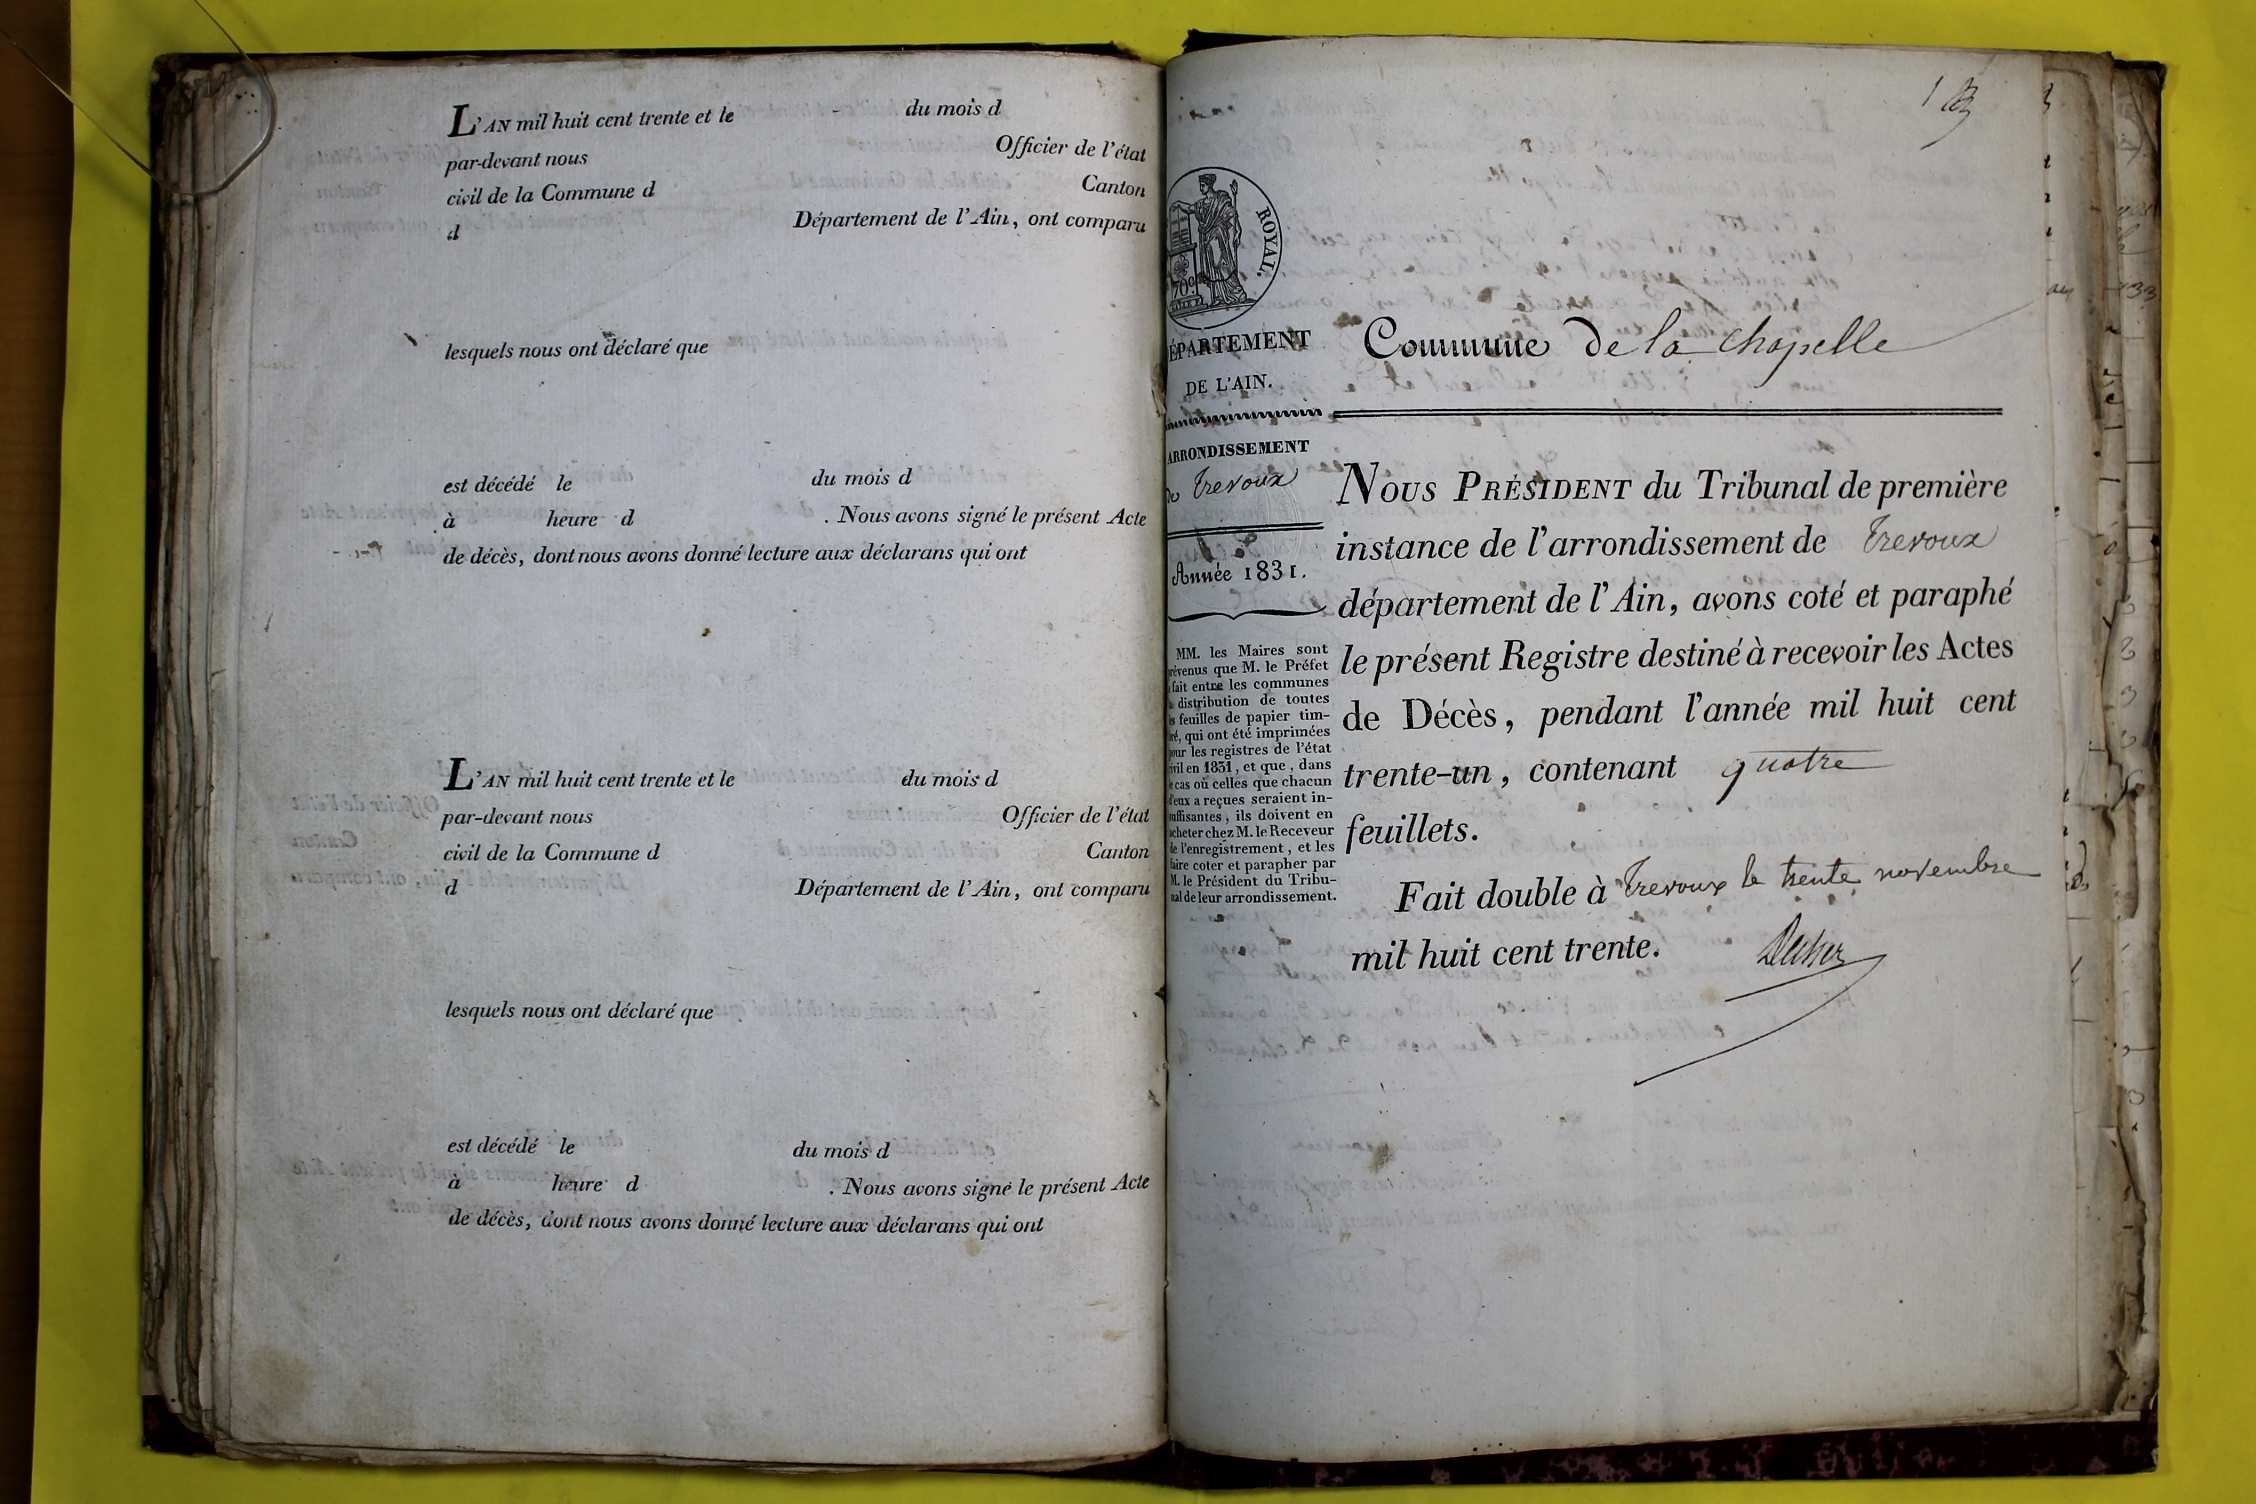 L'AN mil huit cent trente et le du mois d
par-devant nous Officier de l'état
civil de la Commune d Canton
d Département de l'Ain, ont comparu
lesquels nous ont déclaré que
est décédé le du mois d
à heure d . Nous avons signé le présent Acte
de décès, dont nous avons donné lecture aux déclarans qui ont
L'AN mil huit cent trente et le du mois d
par-devant nous Officier de l'état
civil de la Commune d Canton
d Département de l'Ain, ont comparu
lesquels nous ont déclaré que
est décédé le du mois d
à heure d . Nous avons signé le présent Acte
de décès, dont nous avons donné lecture aux déclarans qui ont
1
ROYAL.
70c
ÉPARTEMENT
DE L'AIN.
ARRONDISSEMENT
de Trevoux
Année 1831.
MM. les Maires sont
révenus que M. le Préfet
fait entre les communes
distribution de toutes
s feuilles de papier tim-
ré, qui ont été imprimées
our les registres de l'état
ivil en 1831, et que, dans
e cas où celles que chacun
d'eux a reçues seraient in-
uffisantes, ils doivent en
cheter chez M. le Receveur
de l'enregistrement, et les
faire coter et parapher par
M. le Président du Tribu-
nal de leur arrondissement.
Commune de la chapelle
NOUS PRÉSIDENT du Tribunal de première
instance de l'arrondissement de Trevoux
département de l'Ain, avons coté et paraphé
le présent Registre destiné à recevoir les Actes
de Décès, pendant l'année mil huit cent
trente-un, contenant quatre
feuillets.
Fait double à Trevoux le trente novembre
mil huit cent trente.